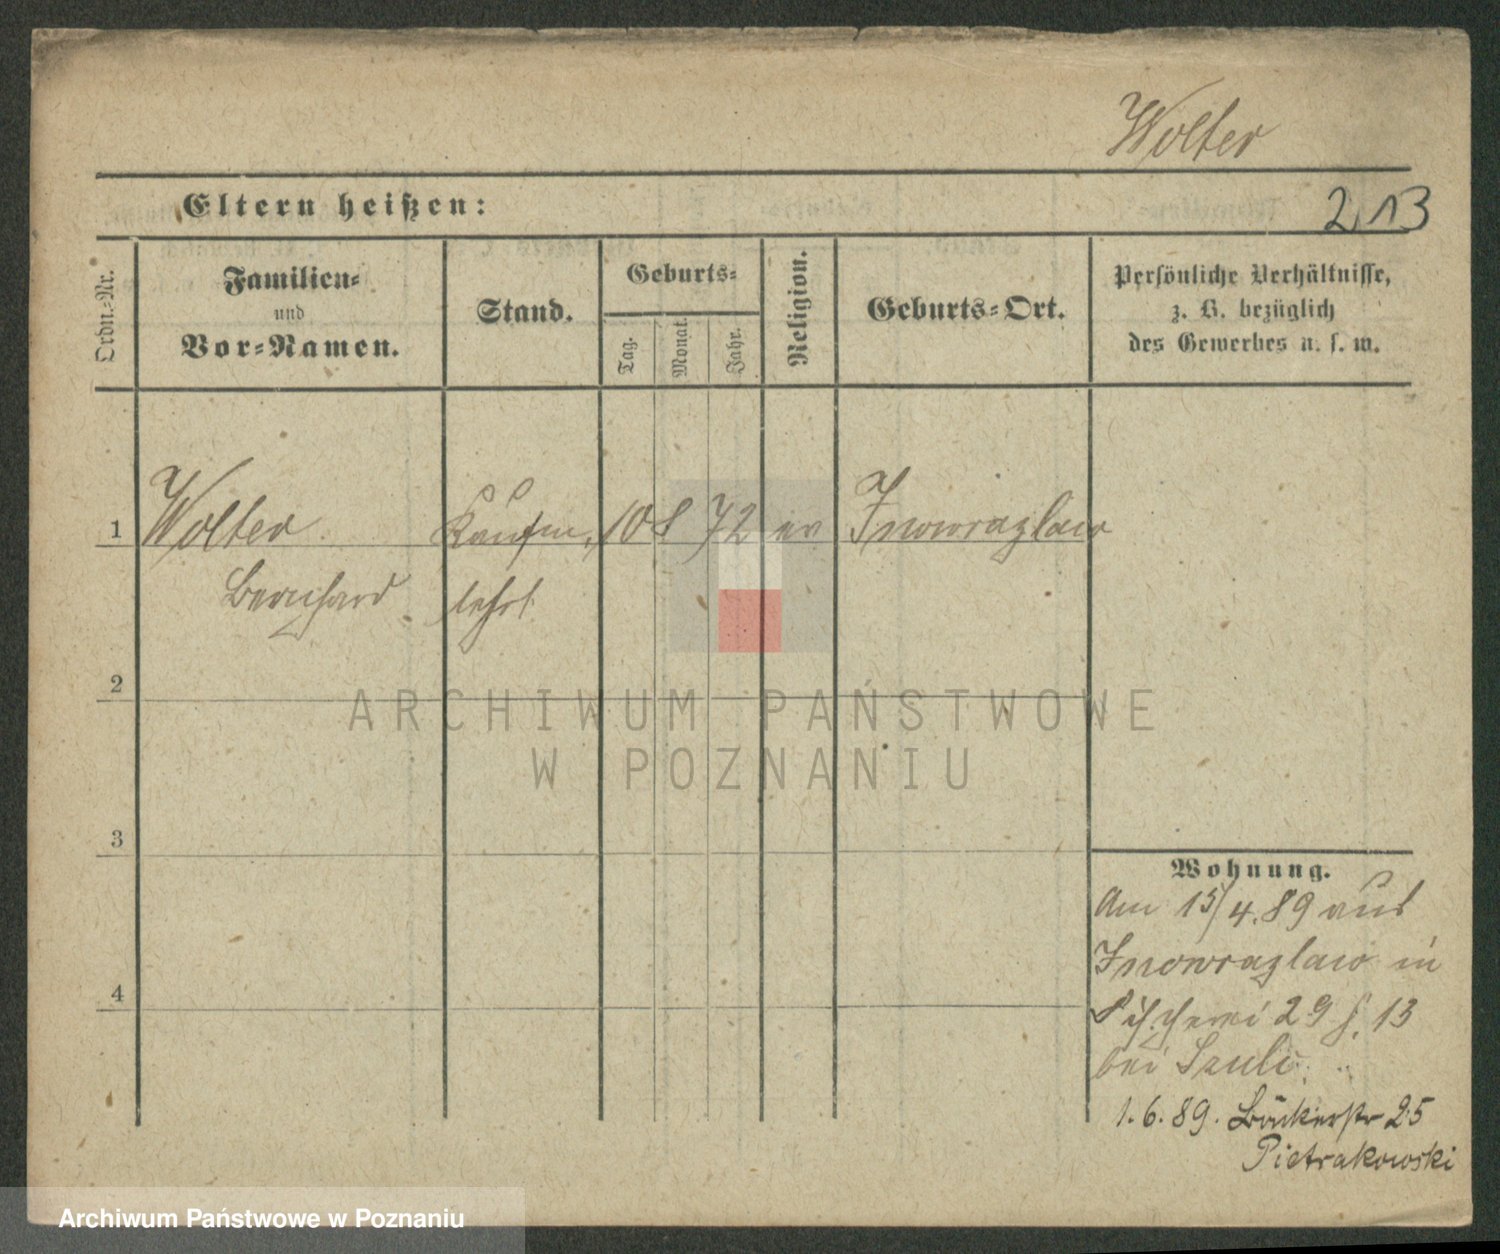 Wolter
Eltern heißen:
213
Ordn.-Nr.
Familien-
und
Vor-Namen.
Stand.
Geburts-
Tag.
Monat.
Jahr.
Religion.
Geburts-Ort.
Persönliche Verhältnisse,
z. B. bezüglich
des Gewerbes u. s. w.
1 Wolter Kaufm, 10 8 72 ev Inowrazlaw
Bernhard lehrl
2
3
4
Wohnung.
Am 15/4.89 aus
Inowrazlaw in
Fischerei 29 13
bei
1.6.89. Bäckerstr 25
Pietrakowski
ARCHIWUM PAŃSTWOWE
W POZNANIU
Archiwum Państwowe w Poznaniu